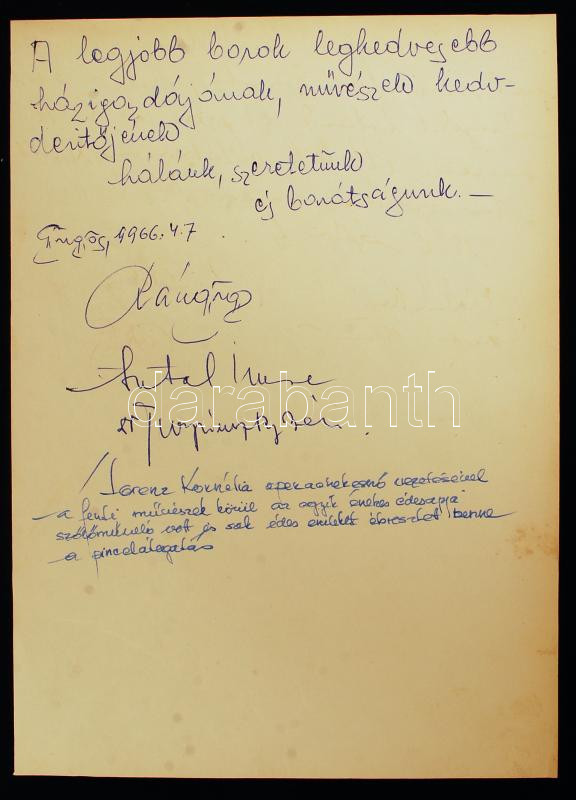 A legjobb borok legkedvesebb
házigazdájának, művészek kedv-
derítőjének
hálánk, szeretetünk
és barátságunk. —
Gyöngyös, 1966. 4. 7
Antal Imre
darabanth
Lorenz Kornélia operaénekesnő vezetésével
a fenti művészek közül az egyik énekes édesapja
szőlőművelő volt és sok édes emléket ébresztett benne
a pincelátogatás